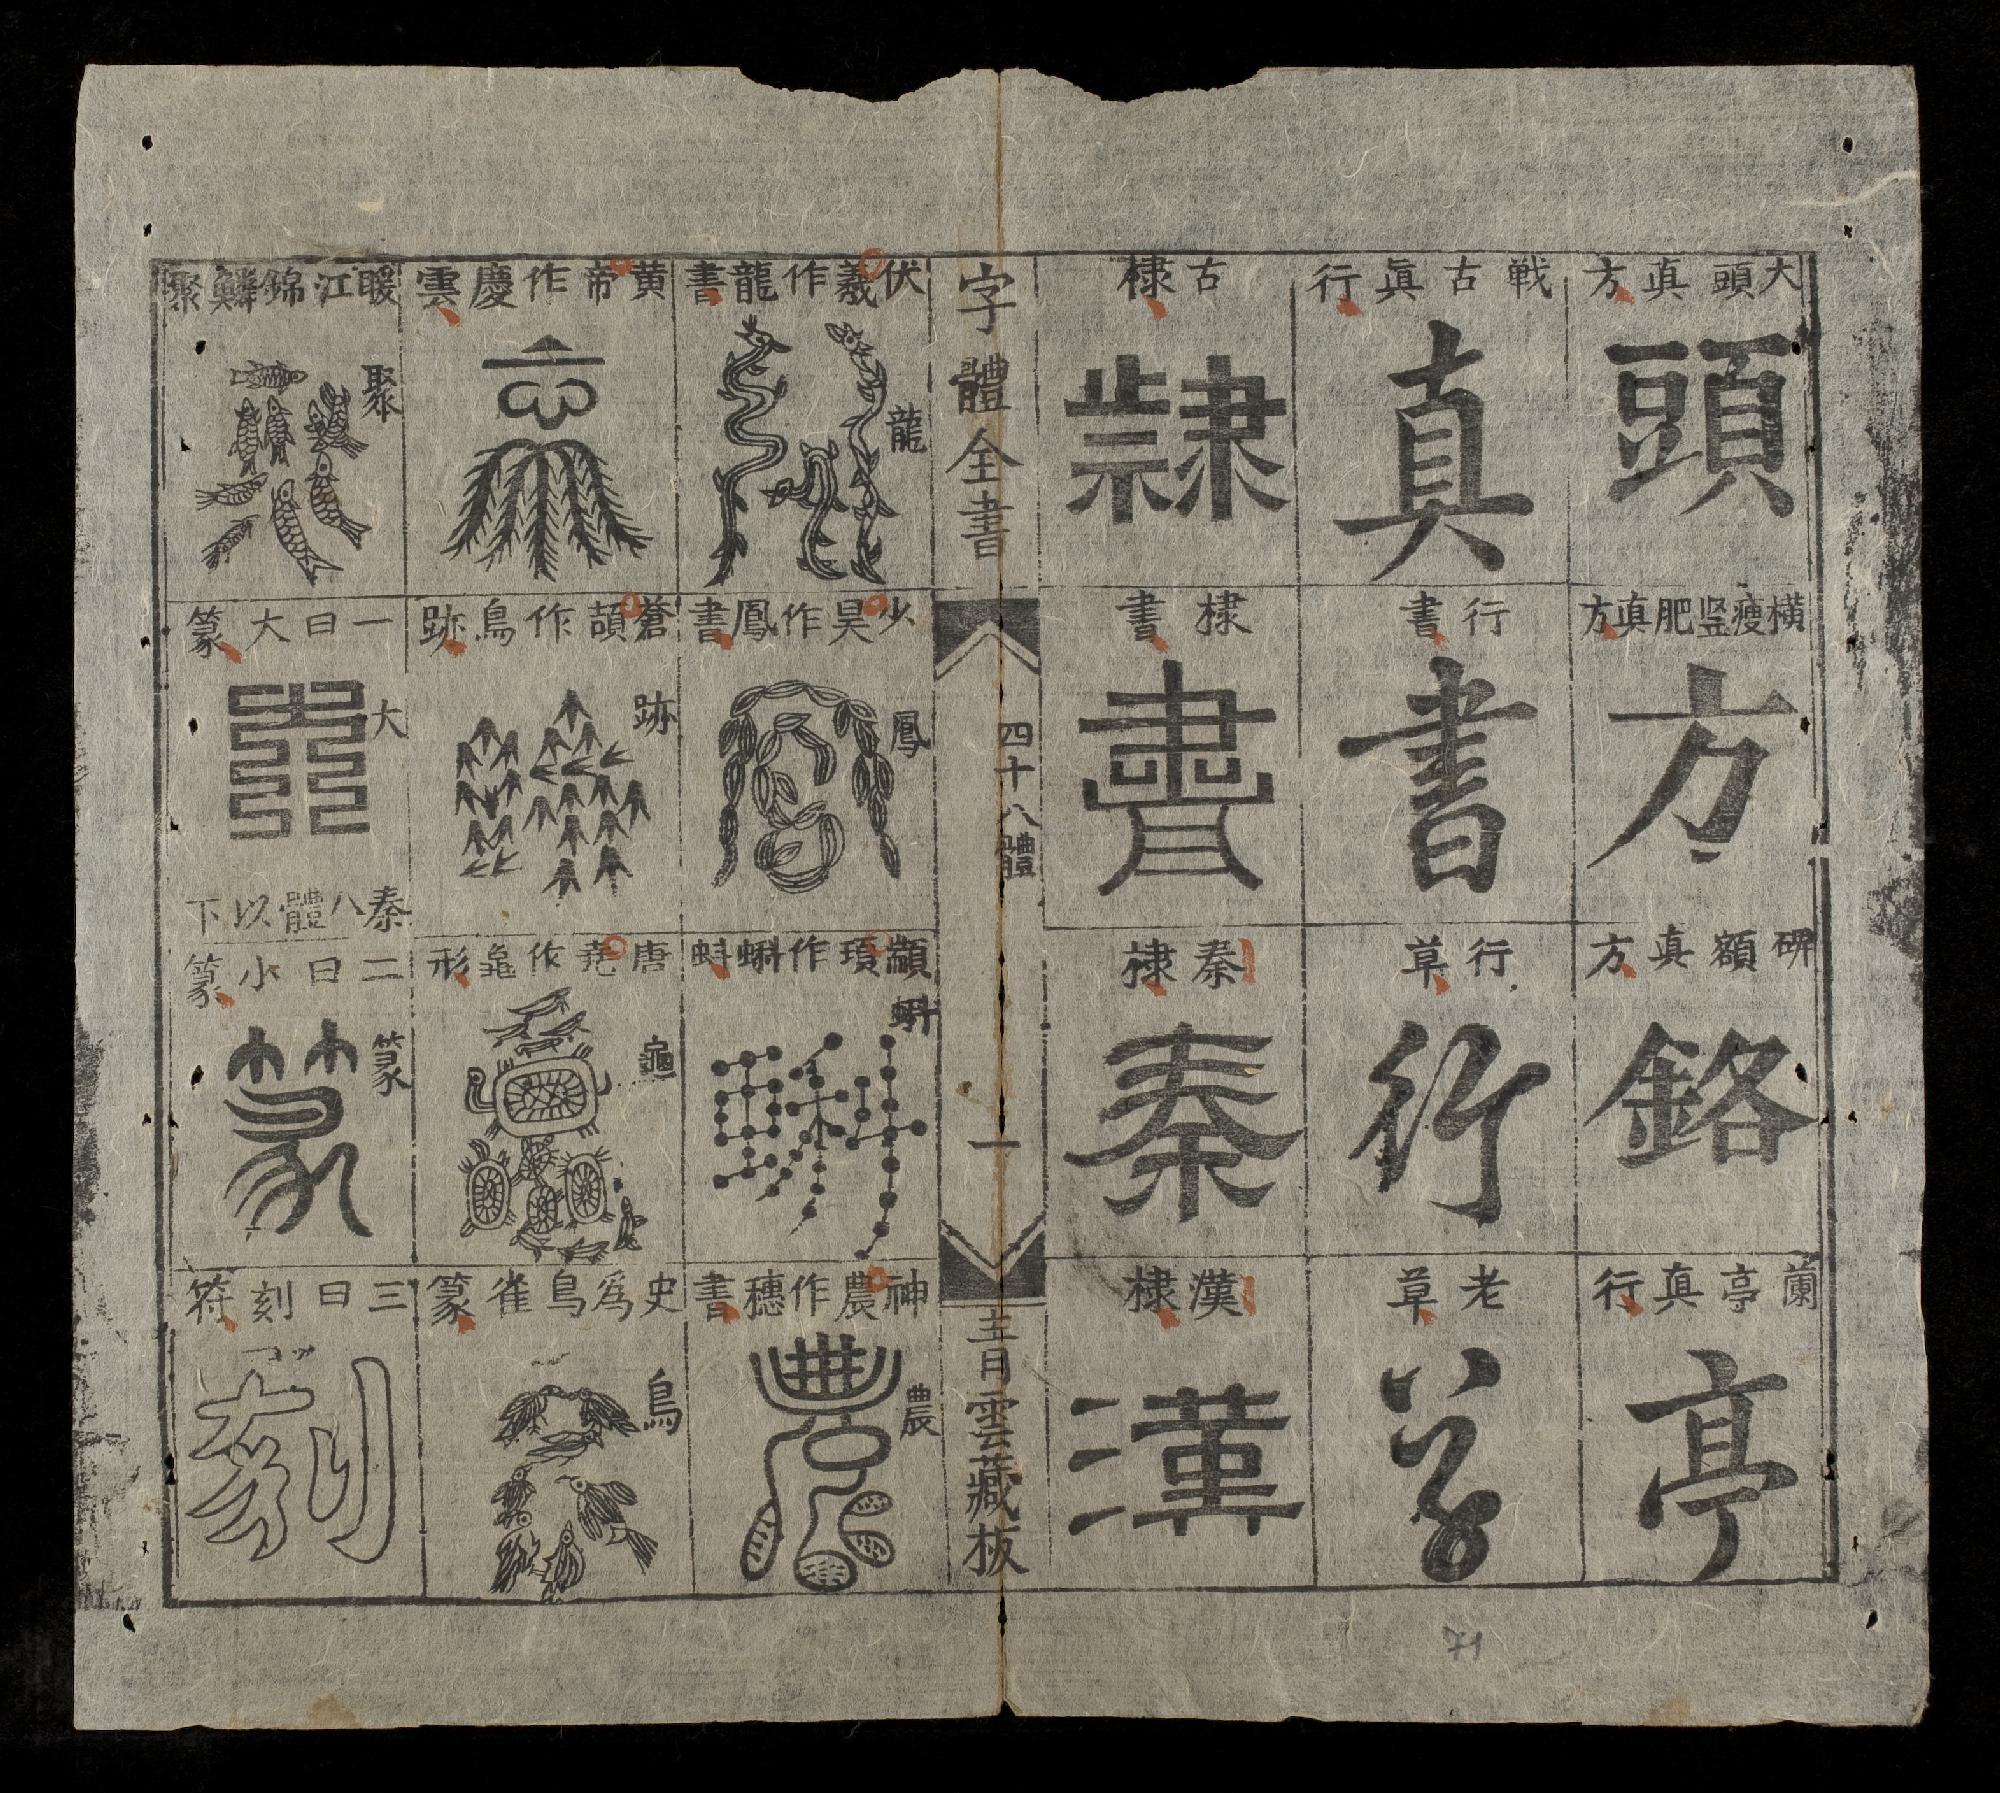 大頭真方
頭
橫瘦竖肥真方
方
碑額真方
鉻
蘭亭真行
亭
戦古眞行
真
行書
書
行草
行
老草
古棣
隸
棣書
書
秦棣
秦
漢棣
漢
字體全書
四十八體
一
青雲藏板
伏羲作龍書
龍
少昊作鳳書
鳳
顓頊作蝌蚪
蝌
神農作穗書
農
農
黃帝作慶雲
蒼頡作鳥跡
跡
唐堯作龜形
龜
史為鳥雀篆
鳥
暖江錦鱗聚
聚
一曰大篆
大
秦八體以下
二曰小篆
篆
篆
三曰刻符
刻
71